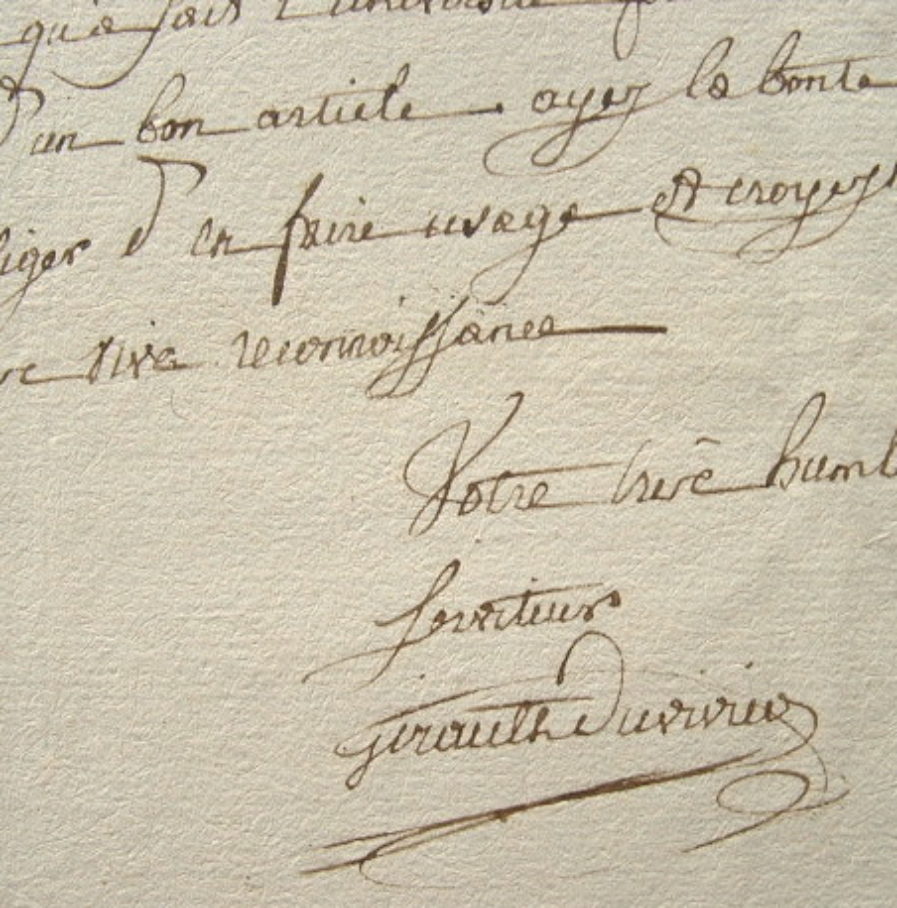 qu'a fait l'université
d'un bon article. ayez la bonté
liger d'en faire usage et croyez
vive reconnoissance
Votre très humb
serviteur
Girault Duvivier